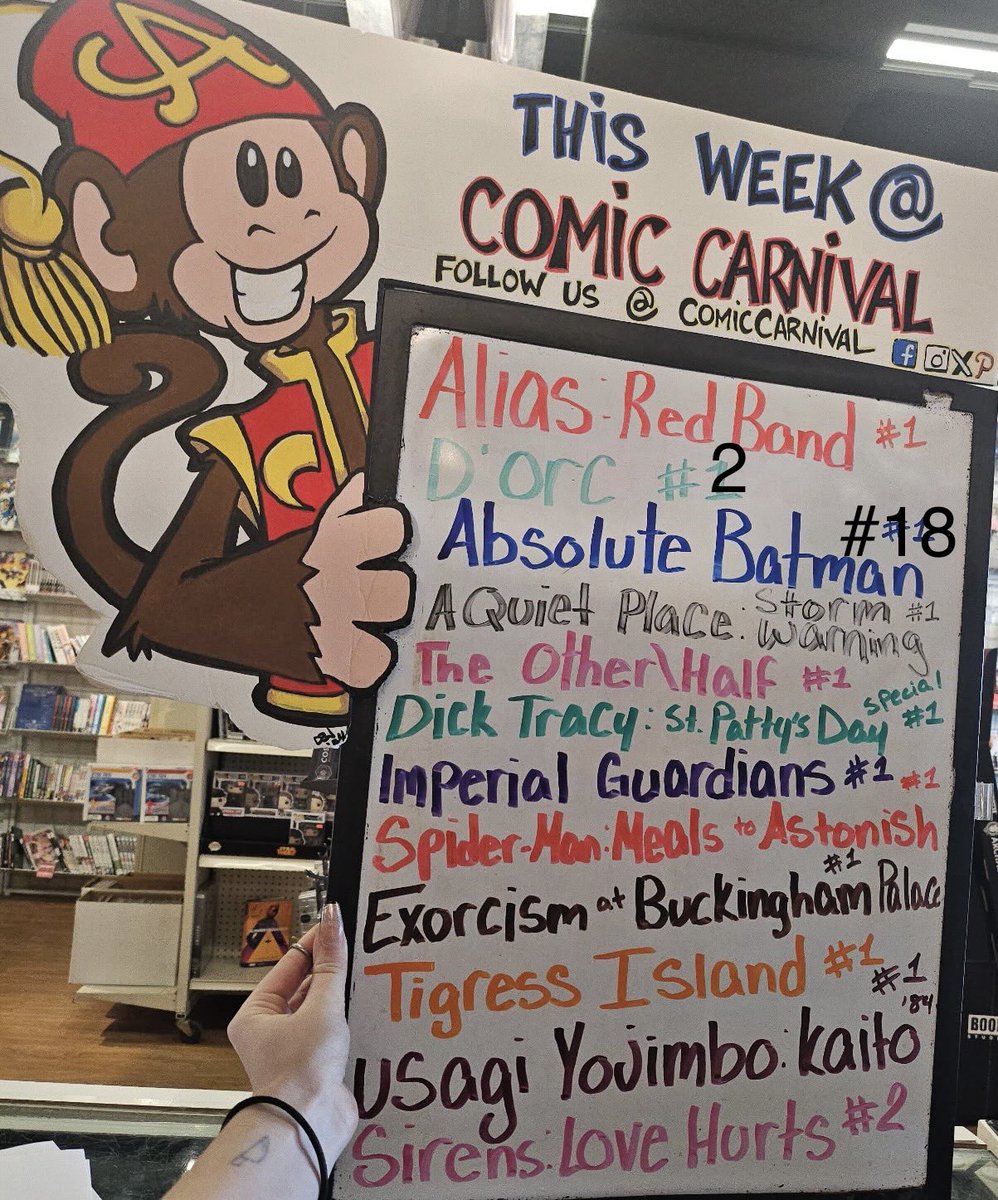 A
THiS WEEK @
COMiC CARNiVAL
FOLLOW US @ COMICCARNIVAL
Alias: Red Band #1
D'orc #2
Absolute Batman #18
A Quiet Place: Storm Warning #1
The Other\Half #1
Dick Tracy: St. Patty's Day special #1
Imperial Guardians #1
Spider-Man: Meals to Astonish #1
Exorcism at Buckingham Palace #1
Tigress Island #1
Usagi Yojimbo: Kaito '84 #1
Sirens: Love Hurts #2